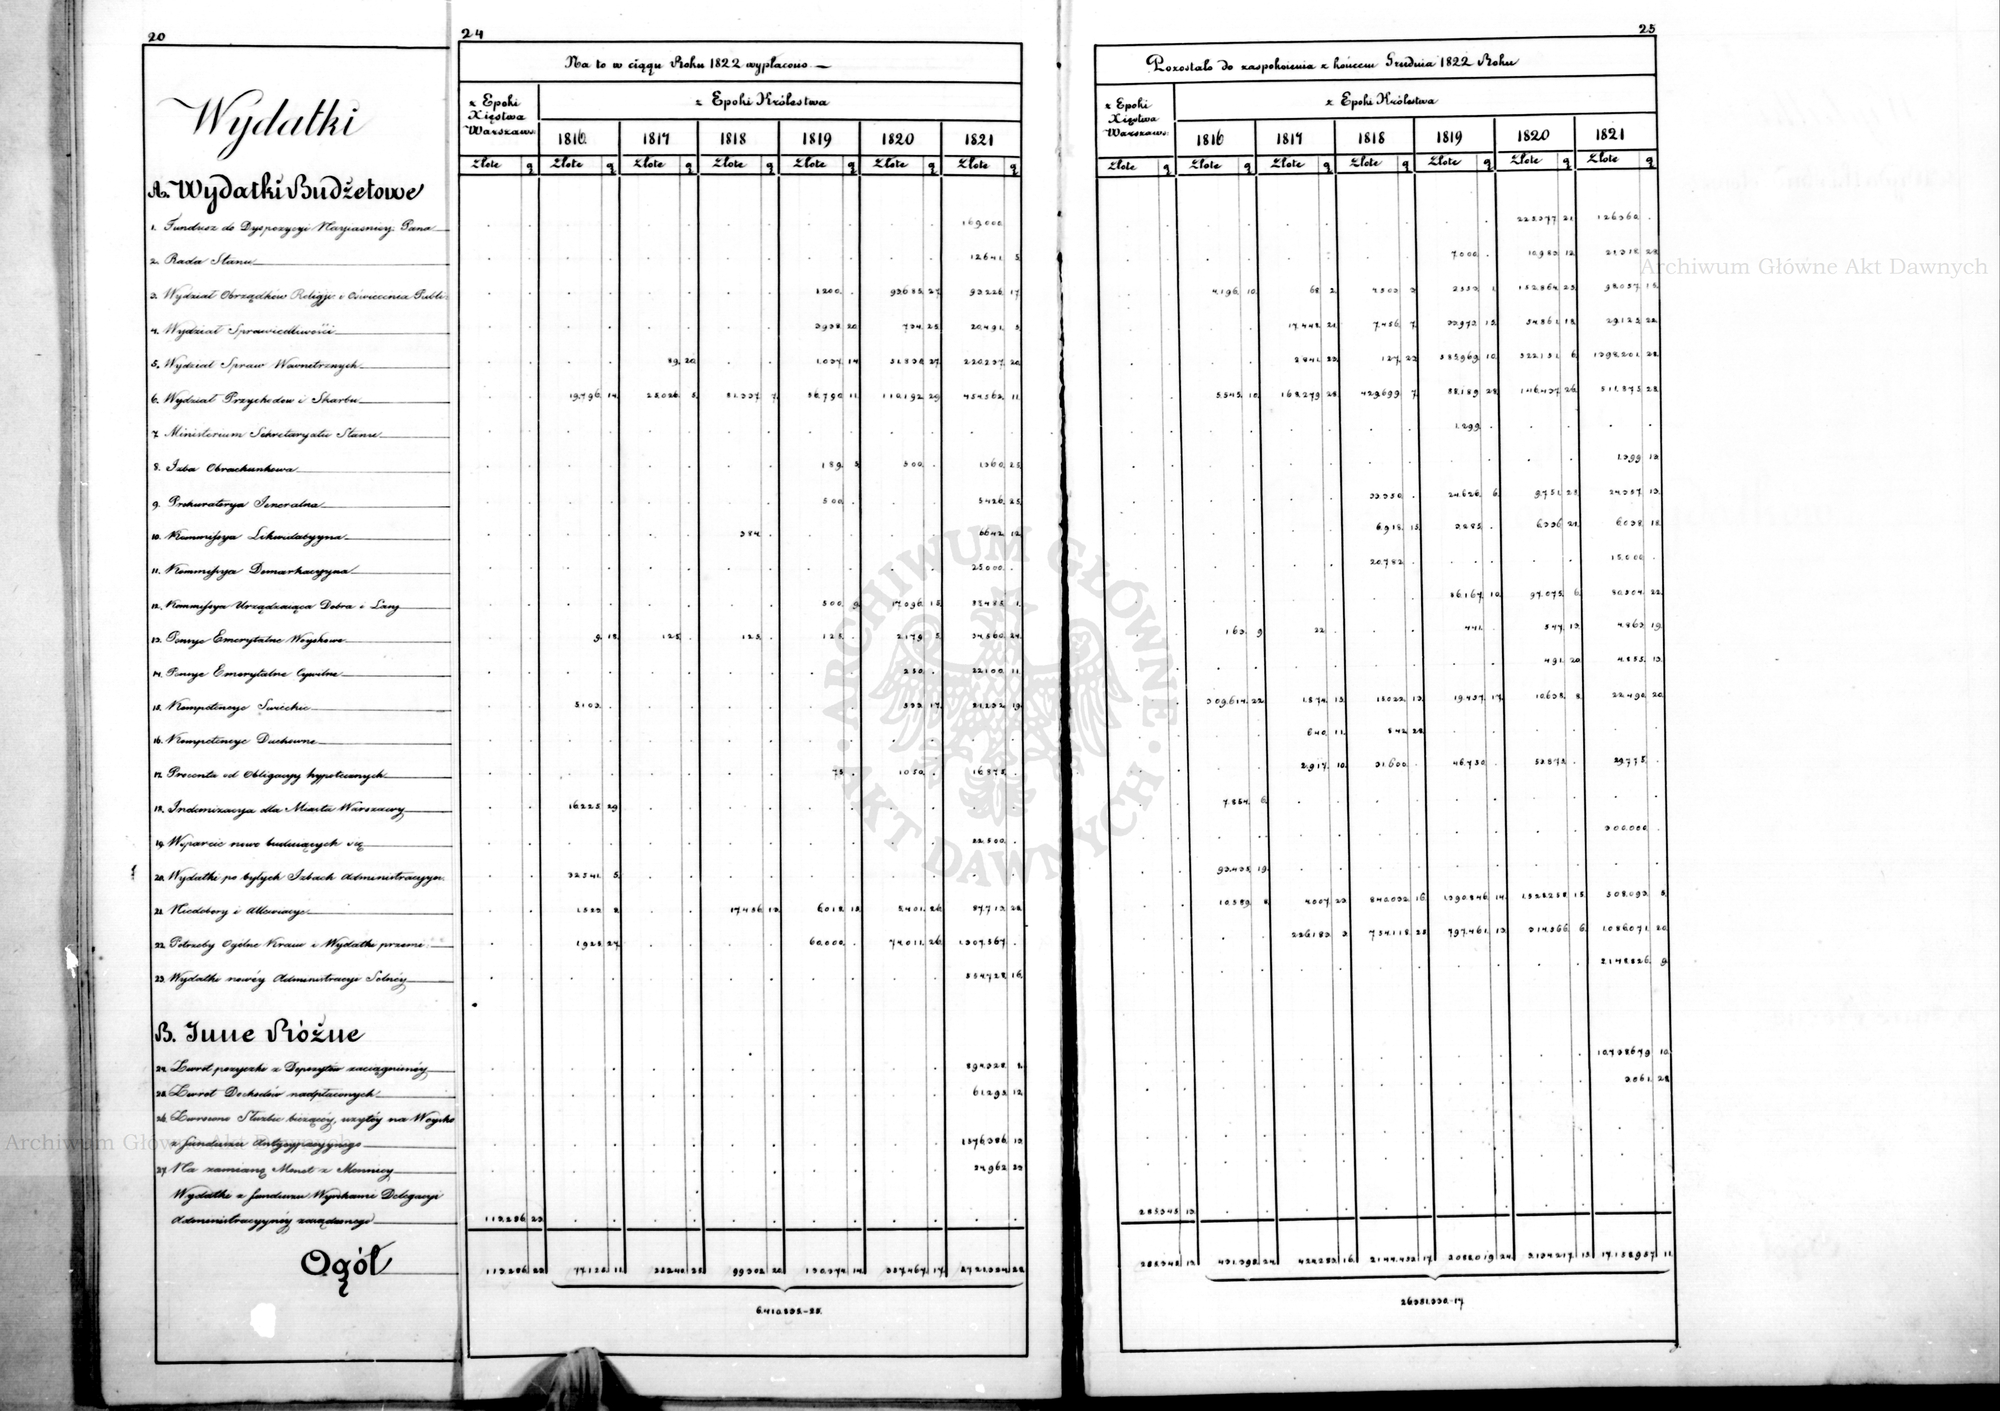 20
Wydatki
A. Wydatki Budżetowe
1. Fundusz do Dyspozycyi Nayiaśniey: Pana
2. Rada Stanu
3. Wydział Obrządków Religij: i Oświecenia Publi:
4. Wydział Sprawiedliwości
5. Wydział Spraw Wewnetrznych
6. Wydział Przychodow i Skarbu
7. Ministerium Sekretaryatu Stanu
8. Izba Obrachunkowa
9. Prokuratorya Jeneralna
10. Kommissya Likwidacyyna
11. Kommissya Demarkacyyna
12. Kommissya Urządzaiąca Dobra i Lasy
13. Pensye Emerytalne Woyskowe
14. Pensye Emerytalne Cywilne
15. Kompetencye Swieckie
16. Kompetencye Duchowne
17. Procenta od Obligacyy hypotecznych
18. Indemizacya dla Miasta Warszawy
19. Wsparcie nowo buduiących się
20. Wydatki po byłych Izbach Administracyyn:
21. Niedobory i Allewiacye
22. Potrzeby Ogólne Kraiu i Wydatki przemi:
23. Wydatki nowéy Administracyi Solnéy
B. Inne Różne
24. Zwrót pożyczki z Depozytów zaciągnionéy
25. Zwrot Dochodów nadpłaconych
26. Zwrócono Służbie bieżącéy, użytéy na Woysko
z funduszu Antycypacyynego
27. Na zamianę Monet z Mennicy
Wydatki z funduszu Wyrokami Delegacyi
Administracyynéy zarządzonego
Ogół
24
Na to w ciągu Roku 1822 wypłacono
z Epoki Xięstwa Warszaws: z Epoki Królestwa
1816 1817 1818 1819 1820 1821
Złote g Złote g Złote g Złote g Złote g Złote g Złote g
169,000
12641 5
1200 93685 27 93226 17
3938 20 734 25 20,491 5
89 20 1,037 14 51,838 27 220,237 20
19,796 14 25,026 5 81,337 7 56,790 11 110,192 29 454,562 11
189 5 500 1360 25
500 5426 25
384 6642 12
25000
500 9 17,096 15 53485 1
9 18 125 125 125 2179 5 34,560 24
250 22100 11
5103 533 17 21,232 19
75 1050 16875
16225 29
22,500
32541 5
1,523 2 17,456 13 6018 18 5401 26 87713 22
1,925 27 60,000 74011 26 1,307,567
554,728 16
894,328 8
61293 12
1,576,386 13
34,962 23
113,286 23
113,286 23 77,126 11 25240 25 99302 20 130,374 14 357,467 17 5,721,324 28
6,410,835-25
25
Pozostało do zaspokoienia z końcem Grudnia 1822 Roku
z Epoki Xięstwa Warszaws: z Epoki Królestwa
1816 1817 1818 1819 1820 1821
Złote g Złote g Złote g Złote g Złote g Złote g Złote g
225,377 21 126360
7000 10,983 12 21,318 28
4,196 10 68 2 4503 3 2553 1 152,864 23 98,037 15
17,448 21 7,456 7 33,973 13 54861 18 29,125 22
2841 23 127 23 585,969 10 322151 6 1,398,201 22
5,545 10 168,279 28 429,699 7 88,189 28 146,437 26 511,875 28
1,299
1,399 13
33,350 24,626 6 9,751 25 24,357 13
6,918 15 3,285 6336 21 6,038 18
20,782 15,000
56,167 10 97,075 6 80,504 22
163 9 22 441 547 13 4,863 19
491 20 4,855 13
309,614 22 1,574 13 15,022 13 19,437 17 10,638 8 22,490 20
640 11 542 28
2,917 10 31,600 46,750 52,875 29,775
7,854 6
300,000
93,435 19
10,589 8 4007 23 840,032 16 1,390,846 14 1,528,258 15 508,093 5
226,183 3 754,118 28 797,461 13 314,566 6 1,086,071 20
2,148,826 9
10,738,679 10
3061 28
285,345 13
285,345 13 431,398 24 424,283 16 2,144,452 17 3,058,019 24 3,134,217 15 17,158,957 11
26,351,330-17
Archiwum Główne Akt Dawnych
Archiwum Główne Akt Dawnych
· ARCHIWUM GŁÓWNE ·
AKT DAWNYCH